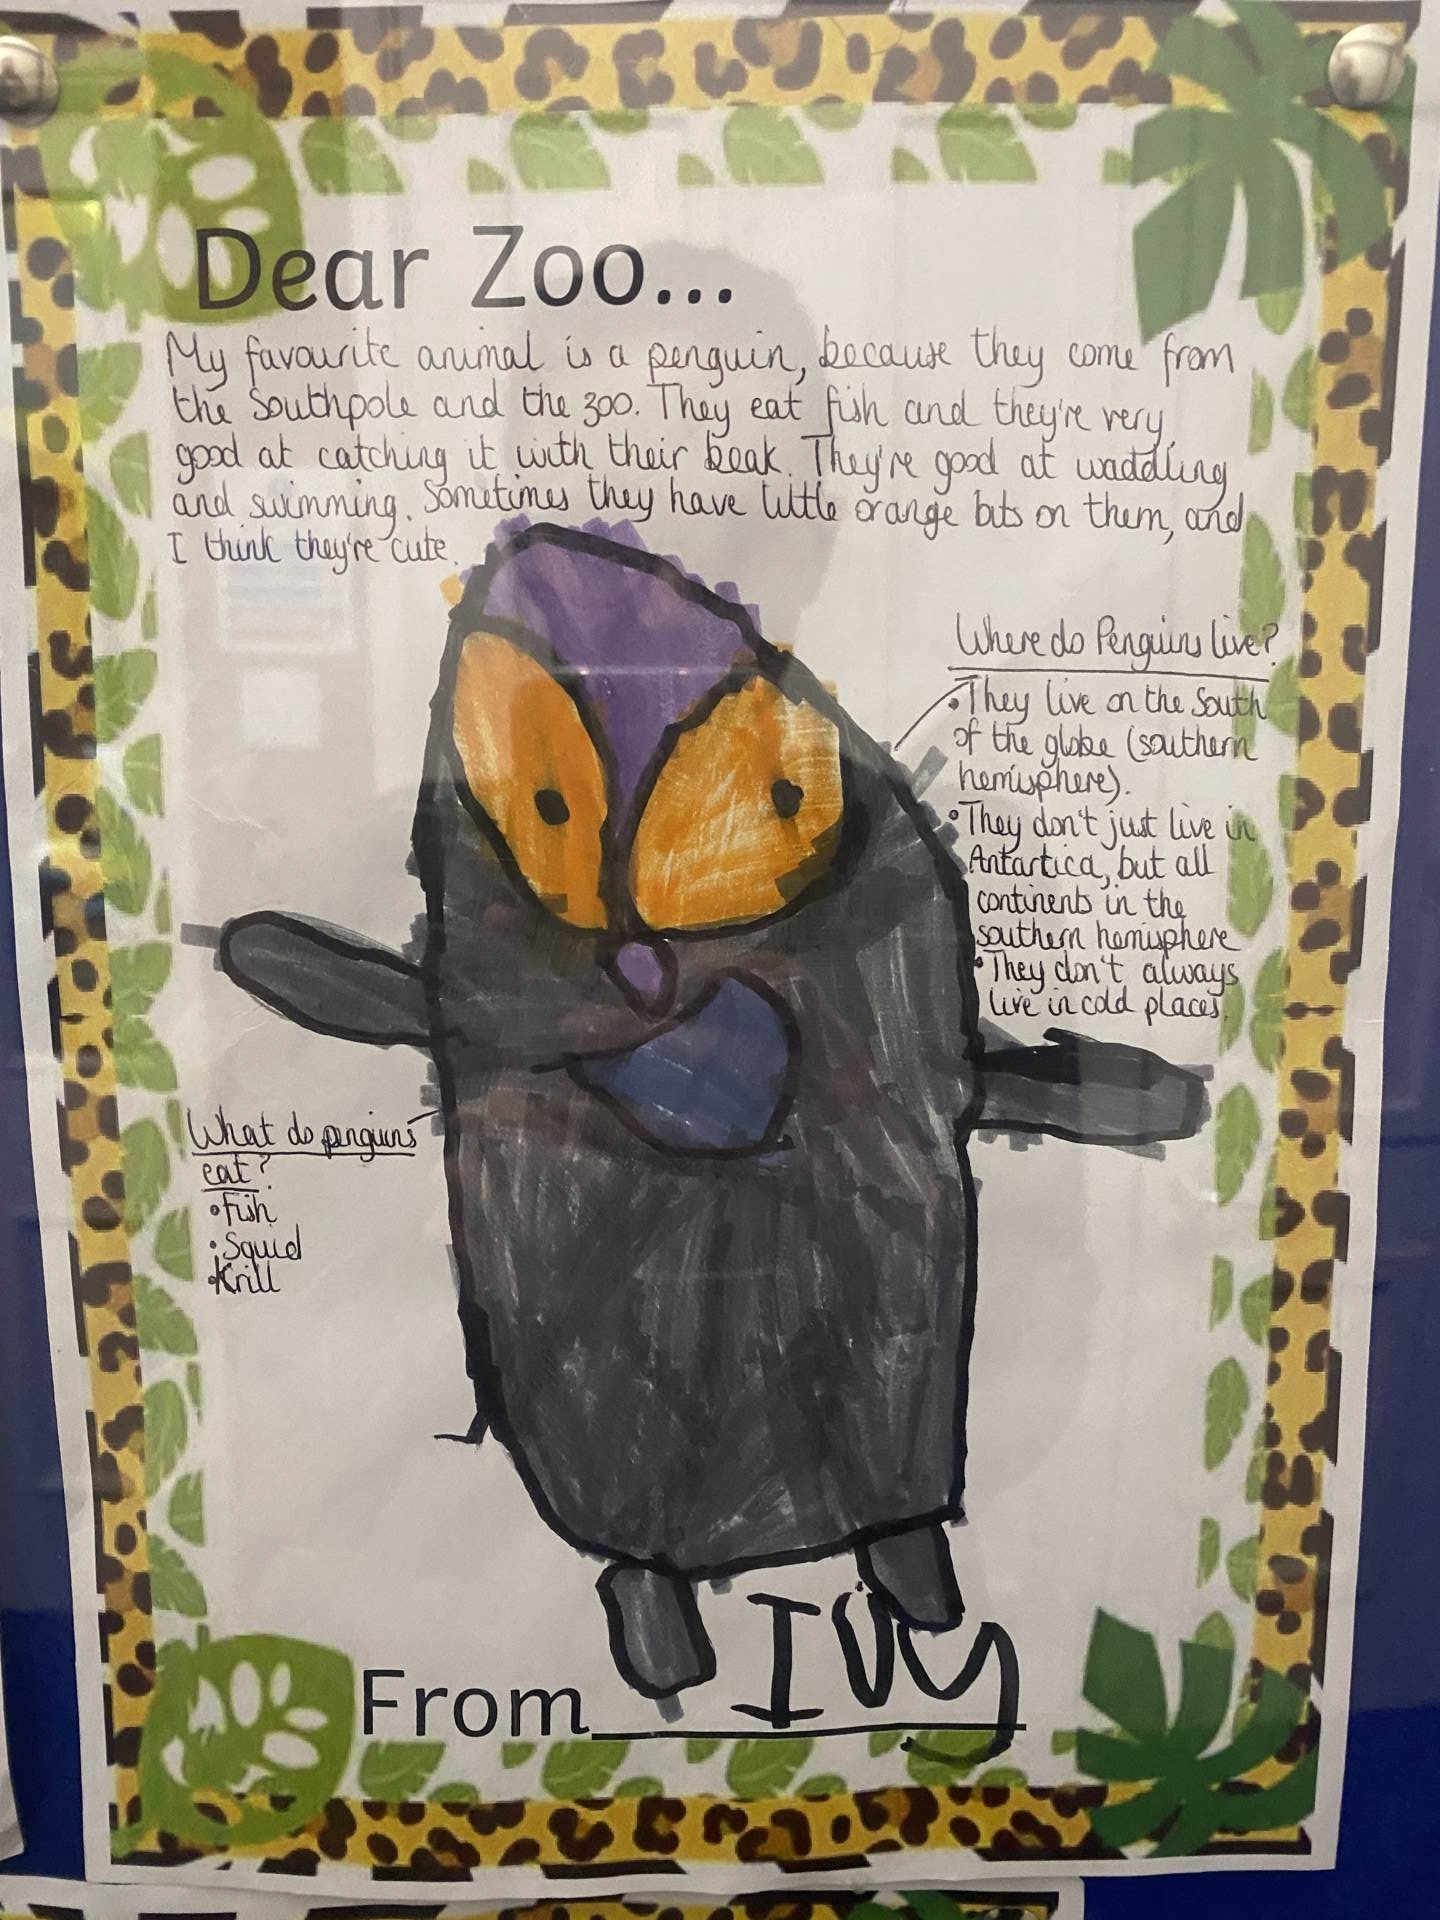 Dear Zoo...
My favourite animal is a penguin, because they come from
the Southpole and the zoo. They eat fish and they're very
good at catching it with their beak. They're good at waddling
and swimming. Sometimes they have little orange bits on them, and
I think they're cute.
Where do Penguins live?
• They live on the South
of the globe (southern
hemisphere).
• They don't just live in
Antartica, but all
continents in the
southern hemisphere
• They don't always
live in cold places.
What do penguins
eat?
• Fish
• Squid
• Krill
From Ivy